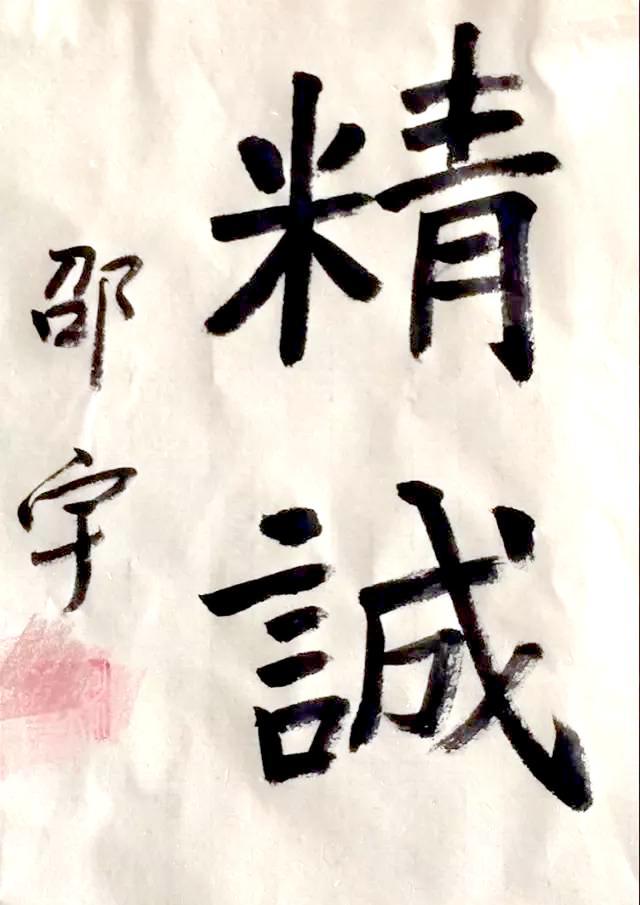 精誠
邵宇